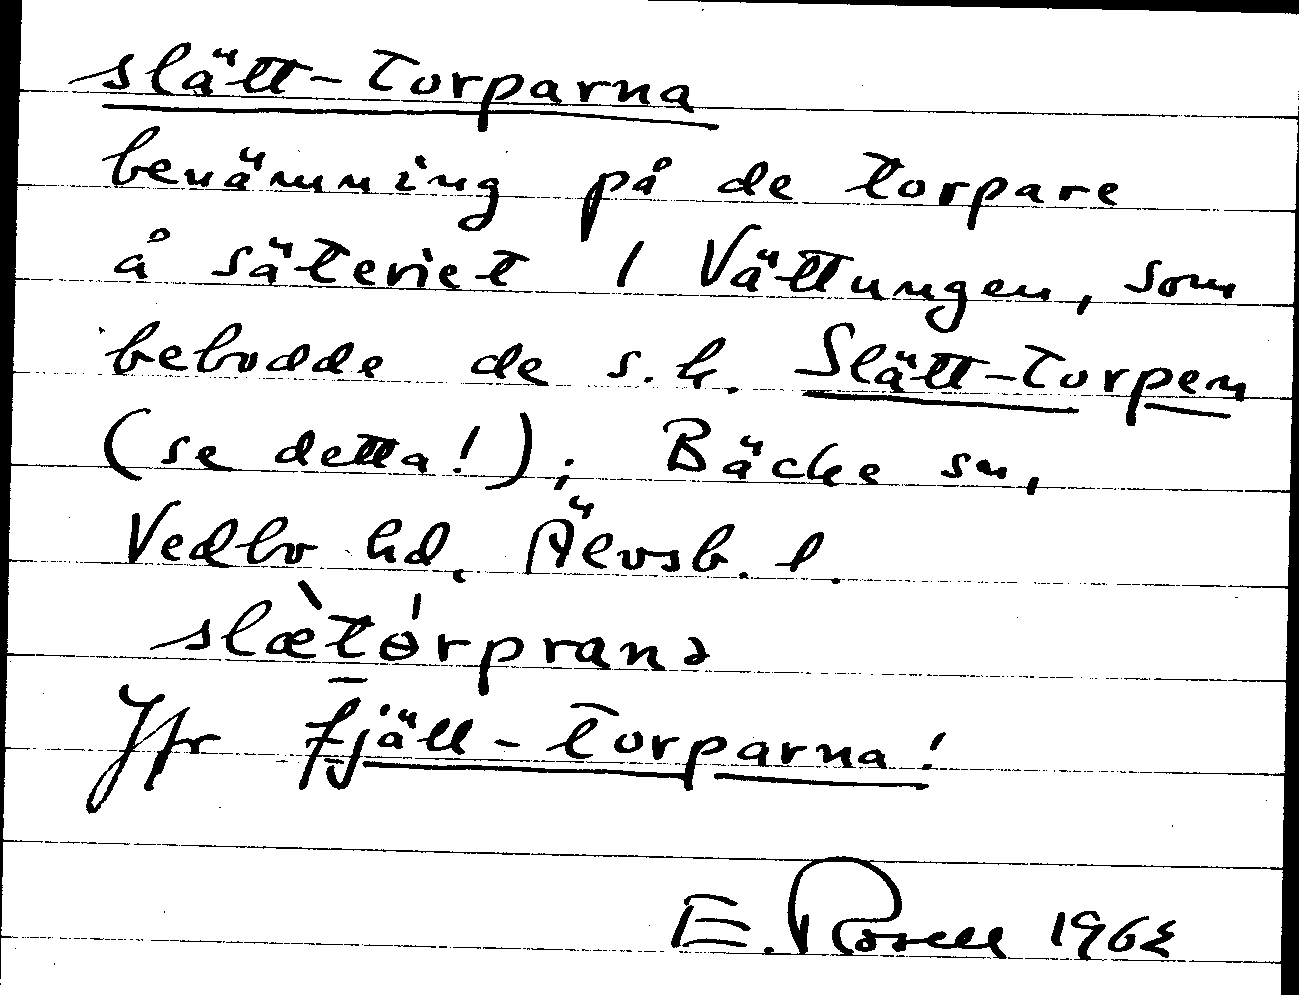 slätt-torparna
benämning på de torpare
å säteriet / Vättungen, som
bebodde de s.k. Slätt-torpen
(se detta!); Bäcke sn,
Vedbo hd. Älvsb. l.
slæ̀tórpranə
Jfr fjäll-torparna!
E. 1962